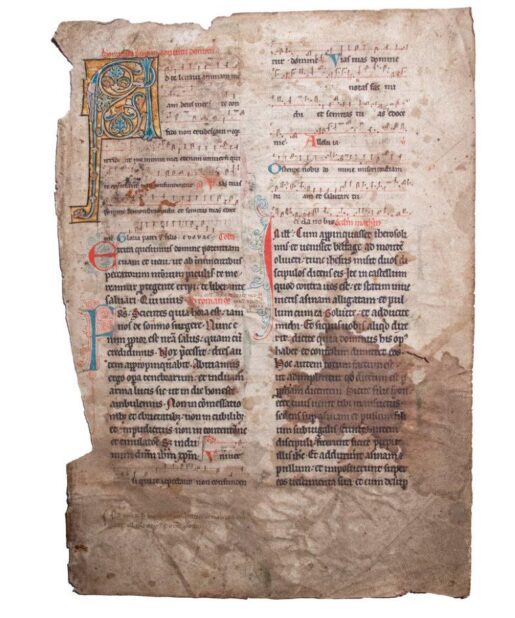 d te levavi animam me
am deus meus in te con
fido non erubescam neq
non confundentur Vias tuas
et semitas tuas edoce
me Gloria patri
Excita quesumus domine potentiam
tuam et veni ut ab iminentibus
peccatorum nostrorum periculis te me
reamur protegente eripi te liberante
salvari Qui vivis Ad romanos
Scientes quia hora est iam
nos de somno surgere Nunc e
nim ppior est nra salus quam cu
credidimus Nox precessit dies au
tem appropinquabit Abiciamus
ergo opa tenebrarum et induam
arma lucis sic ut in die honeste
ambulemus Non in comessatioib
non in cubilib
et impudicitiis non in contentione
et emulatione Sz indui
mini dnm ihm xpm Univer
si qui te expectant non confunden
tur domine Vias tuas domine
notas fac mi
chi et semitas tuas edoce
me Alleluia
Ostende nobis domine misericordiam
tuam et salutare tuum
da nobis
Cum appropinquasset iherosoli
mis et venisset betfage ad monte
oliveti tunc ihesus misit duos di
scipulos dicens eis Ite in castellum
quod contra vos est et statim inve
nietis asinam alligatam et pul
lum cum ea Solvite et adducite
michi Et si quis vobis aliquid dixe
rit dicite quia dominus his op
habet et confestim dimittet eos
Hoc autem totum factum est
ut adimpleretur quod dictum est p
pphetam dicentem Dicite filie syon
Ecce rex tuus venit tibi mansuetus
sedens sup asinam et pullum fili
um subiugalis Euntes autem
discipuli fecerunt sicut precepit
illis ihc Et adduxerunt asinam et
pullum et imposuerunt super
eos vestimenta sua et eum desup